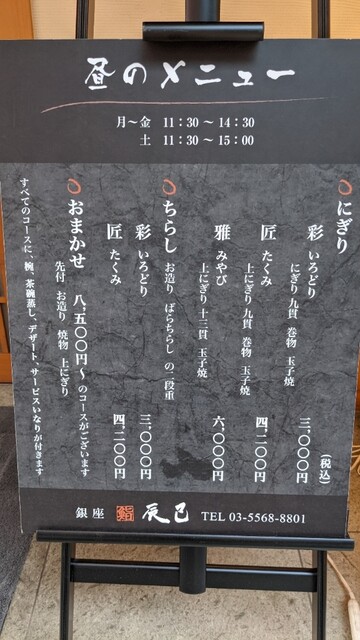 昼のメニュー
月～金 11:30～14:30
土 11:30～15:00
にぎり
(税込)
彩 いろどり 三、〇〇〇円
にぎり九貫 巻物 玉子焼
匠 たくみ 四、二〇〇円
上にぎり九貫 巻物 玉子焼
雅 みやび 六、〇〇〇円
上にぎり十三貫 玉子焼
ちらし
お造り ばらちらし の二段重
彩 いろどり 三、〇〇〇円
匠 たくみ 四、二〇〇円
おまかせ 八、五〇〇円～のコースがございます
先付 お造り 焼物 上にぎり
すべてのコースに、椀、茶碗蒸し、デザート、サービスいなりが付きます
銀座 鮨 辰巳 TEL 03-5568-8801